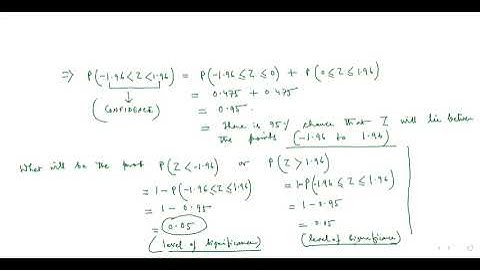 ⇒ P(-1.96 < Z < 1.96) = P(-1.96 ≤ Z ≤ 0) + P(0 ≤ Z ≤ 1.96)
(CONFIDENCE) = 0.475 + 0.475
= 0.95.
= There is 95% chance that Z will lie between
the points (-1.96 to 1.96)
What will be the prob P(Z < -1.96) or P(Z > 1.96)
= 1 - P(-1.96 ≤ Z ≤ 1.96) = 1 - P(-1.96 ≤ Z ≤ 1.96)
= 1 - 0.95 = 1 - 0.95
= 0.05 = 0.05
(level of significance) (level of significance)